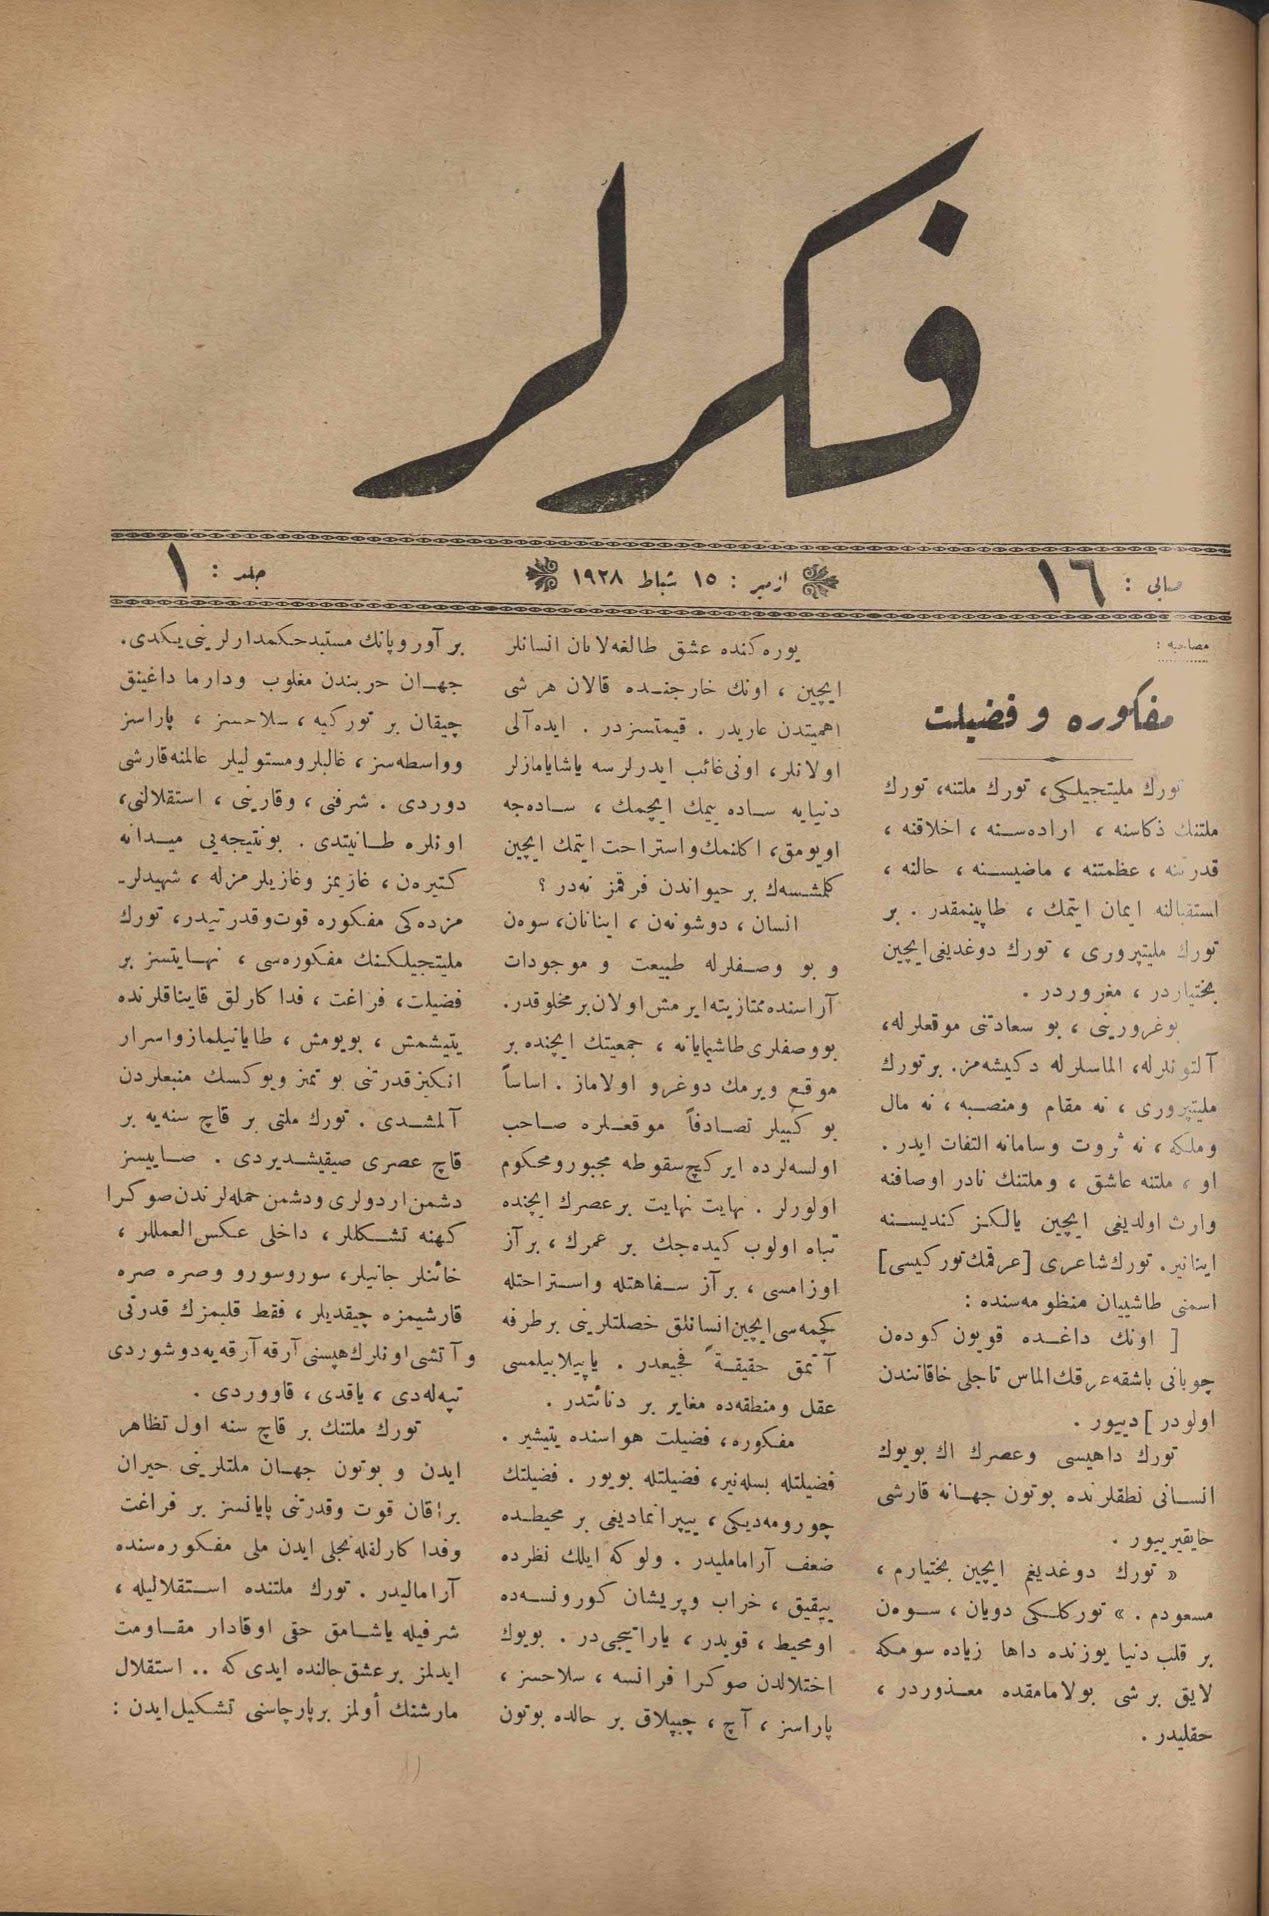 فكرلر
صایی : ١٦
ازمیر : ١٥ شباط ١٩٢٨
جلد : ١
مصاحبه :
مفكوره و فضیلت
تورك ملیتجیلكی، تورك ملتنه، تورك
ملتنك ذكاسنه ، اراده‌سنه ، اخلاقنه ،
قدرتنه ، عظمتنه ، ماضیسنه ، حالنه ،
استقبالنه ایمان ایتمك ، طاپینمقدر . بر
تورك ملیتپروری ، تورك دوغدیغی ایچین
بختیاردر ، مغروردر .
بوغرورینی ، بو سعادتنی موقعلرله،
آلتونلرله، الماسلرله دكیشه‌مز. بر تورك
ملیتپروری ، نه مقام ومنصبه ، نه مال
وملكه ، نه ثروت وسامانه التفات ایدر .
او ، ملتنه عاشق ، وملتنك نادر اوصافنه
وارث اولدیغی ایچین یالكز كندیسنه
اینانیر. تورك شاعری [عرقمك توركیسی]
اسمنی طاشییان منظومه‌سنده :
[ اونك داغده قویون كوده‌ن
چوبانی باشقه عرقك الماس تاجلی خاقانندن
اولودر ] دییور .
تورك داهیسی وعصرك اك بویوك
انسانی نطقلرنده بوتون جهانه قارشی
حایقیرییور .
« تورك دوغدیغم ایچین بختیارم ،
مسعودم . » توركلكی دویان ، سوه‌ن
بر قلب دنیا یوزنده داها زیاده سومكه
لایق بر شی بولامامقده معذوردر ،
حقلیدر .
یوره‌كنده عشق طالغه‌لانان انسانلر
ایچین ، اونك خارجنده قالان هر شی
اهمیتدن عاریدر . قیمتسزدر . ایده‌آلی
اولانلر، اونی غائب ایدرلرسه یاشایامازلر
دنیایه ساده ییمك ایچمك ، ساده‌جه
اویومق، اكلنمك واستراحت ایتمك ایچین
كلمشسه‌ك بر حیواندن فرقمز نه‌در ؟
انسان ، دوشونه‌ن ، اینانان، سوه‌ن
و بو وصفلرله طبیعت و موجودات
آراسنده ممتازیته ایرمش اولان بر مخلوقدر.
بووصفلری طاشیمایانه ، جمعیتك ایچنده بر
موقع ویرمك دوغرو اولاماز . اساساً
بو كبیلر تصادفاً موقعلره صاحب
اولسه‌لرده ایركچ سقوطه مجبورومحكوم
اولورلر . نهایت نهایت بر عصرك ایچنده
تباه اولوب كیده‌جك بر عمرك ، بر آز
اوزامسی ، بر آز سفاهتله واستراحتله
كچمه‌سی ایچین انسانلق خصلتلرینی بر طرفه
آتمق حقیقةً فجیعدر . یاپیلابیلمسی
عقل ومنطقه‌ده مغایر بر دنائتدر .
مفكوره، فضیلت هواسنده یتیشیر .
فضیلتله بسله‌نیر، فضیلتله بویور . فضیلتك
چورومه‌دیكی ، ییپرانمادیغی بر محیطده
ضعف آرامامالیدر . ولوكه ایلك نظرده
ییقیق ، خراب وپریشان كورونسه‌ده
اومحیط ، قویدر ، یاراتیجی‌در . بویوك
اختلالدن صوكرا فرانسه ، سلاحسز ،
پاراسز ، آچ ، چیپلاق بر حالده بوتون
بر آوروپانك مستبد حكمدارلرینی ییكدی.
جهان حربندن مغلوب ودارما داغینق
چیقان بر توركیه ، سلاحسز ، پاراسز
وواسطه‌سز ، غالبلرومستولیلر عالمنه قارشی
دوردی . شرفنی ، وقارینی ، استقلالنی،
اونلره طانیتدی . بونتیجه‌یی میدانه
كتیره‌ن ، غازیمز وغازیلرمزله ، شهیدلر-
مزده‌كی مفكوره قوت‌وقدرتیدر، تورك
ملیتجیلكنك مفكوره‌سی ، نهایتسز بر
فضیلت، فراغت ، فداكارلق قایناقلرنده
یتیشمش ، بویومش ، طایانیلماز واسرار
انكیز قدرتنی بو تمیز ویوكسك منبعلردن
آلمشدی . تورك ملتی بر قاچ سنه‌یه بر
قاچ عصری صیقیشدیردی . صاییسز
دشمن اردولری ودشمن حمله‌لرندن صوكرا
كهنه تشكللر ، داخلی عكس‌العمللر ،
خائنلر جانیلر، سوروسورو وصره صره
قارشیمزه چیقدیلر ، فقط قلبمزك قدرتی
وآتشی اونلرك هپسنی آرقه آرقه‌یه دوشوردی
تپه‌له‌دی ، یاقدی ، قاووردی .
تورك ملتنك بر قاچ سنه اول تظاهر
ایدن و بوتون جهان ملتلرینی حیران
براقان قوت وقدرتنی پایانسز بر فراغت
وفداكارلقله تجلی ایدن ملی مفكوره‌سنده
آرامالیدر . تورك ملتنده استقلالیله ،
شرفیله یاشامق حقی اوقادار مقاومت
ایدلمز بر عشق حالنده ایدی كه .. استقلال
مارشنك أولمز بر پارچاسنی تشكیل ایدن :